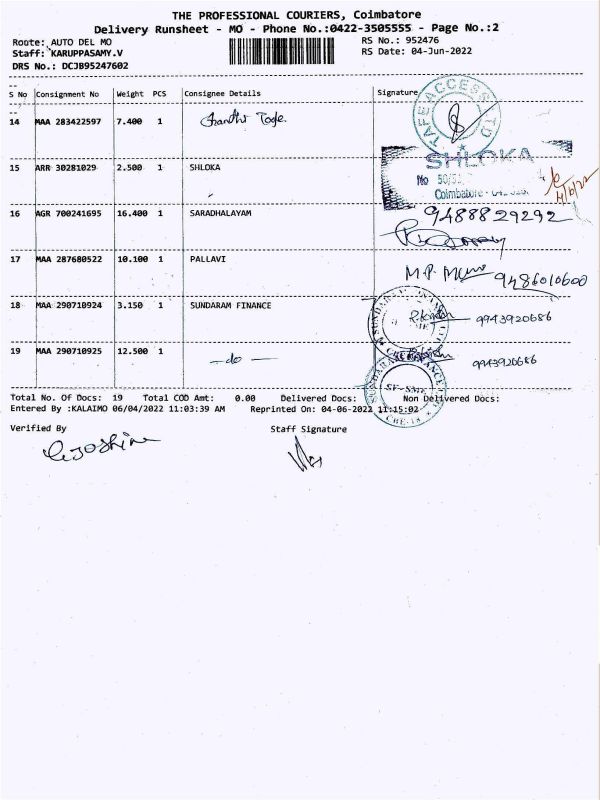 THE PROFESSIONAL COURIERS, Coimbatore
Delivery Runsheet - MO - Phone No.:0422-3505555 - Page No.:2
Route: AUTO DEL MO
RS No.: 952476
Staff: KARUPPASAMY.V
RS Date: 04-Jun-2022
DRS No.: DCJB95247602
S No Consignment No Weight PCS Consignee Details Signature
14 MAA 283422597 7.400 1
TAFE ACCESS LTD
15 ARR 30281029 2.500 1 SHLOKA
SHLOKA
No
Coimbatore
16 AGR 700241695 16.400 1 SARADHALAYAM 9488829292
17 MAA 287680522 10.100 1 PALLAVI M.P. 9486010600
18 MAA 290710924 3.150 1 SUNDARAM FINANCE 9943920686
19 MAA 290710925 12.500 1 -do- 9943920686
SF-SME
CBE-18
Total No. Of Docs: 19 Total COD Amt: 0.00 Delivered Docs: Non Delivered Docs:
Entered By :KALAIMO 06/04/2022 11:03:39 AM Reprinted On: 04-06-2022 11:15:02
Verified By Staff Signature